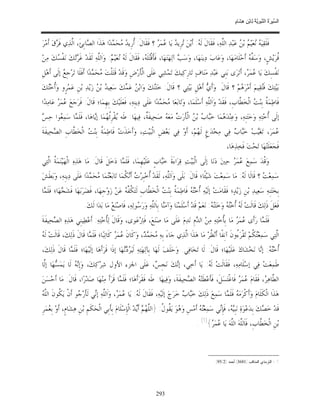 السيرة النبوية لابن هشام
فَلَقِيَهُ نُعَيْمُ بْنُ عَبْدِ اللَّهِ، فَقَالَ لَهُ: أَيْنَ تُرِيدُ يَا عُمَرُ ؟ فَقَالَ: أُرِيدُ مُحَمَّدًا هَذَا الصَّابِئَ، الَّذِي فَرَّقَ أَمْرَ
قُرَيْشٍ، وَسَفَّهَ أَحْلَامَهَا، وَعَابَ دِينَهَا، وَسَبَّ آلِهَتَهَا، فَأَقْتُلَهُ، فَقَالَ لَهُ نُعَيْمٌ: وَاللَّهِ لَقَدْ غَرَّتْكَ نَفْسُكَ مِنْ
نَفْسِكَ يَا عُمَرُ، أَتَرَى بَنِي عَبْدِ مَنَافٍ تَارِكِيكَ تَمْشِي عَلَى الْأَرْضِ وَقَدْ قَتَلْتَ مُحَمَّدًا أَفَلَا تَرْجِعُ إلَى أَهْلِ
بَيْتِكَ فَتُقِيمَ أَمْرَهُمْ ؟ قَالَ: وَأَيُّ أَهْلِ بَيْتِي ؟ قَالَ: خَتَنُكَ وَابْنُ عَمِّكَ سَعِيدُ بْنُ زَيْدِ بْنِ عَمْرٍو، وَأُخْتُكَ
فَاطِمَةُ بِنْتُ الْخَطَّابِ، فَقَدْ وَاللَّهِ أَسْلَمَا، وَتَابَعَا مُحَمَّدًا عَلَى دِينِهِ، فَعَلَيْكَ بِهِمَا، قَالَ: فَرَجَعَ عُمَرُ عَامِدًا
إلَى أُخْتِهِ وَخَتَنِهِ، وَعِنْدَهُمَا خَبَّابُ بْنُ الْأَرَتِّ مَعَهُ صَحِيفَةٌ، فِيهَا طَه يُقْرِئُهُمَا إيَّاهَا، فَلَمَّا سَمِعُوا حِسَّ
عُمَرَ، تَغَيَّبَ خَبَّابٌ فِي مِخْدَعٍ لَهُمْ، أَوْ فِي بَعْضِ الْبَيْتِ، وَأَخَذَتْ فَاطِمَةُ بِنْتُ الْخَطَّابِ الصَّحِيفَةَ
فَجَعَلَتْهَا تَحْتَ فَخِذِهَا،
وَقَدْ سَمِعَ عُمَرُ حِينَ دَنَا إلَى الْبَيْتِ قِرَاءَةَ خَبَّابٍ عَلَيْهِمَا، فَلَمَّا دَخَلَ قَالَ: مَا هَذِهِ الْهَيْنَمَةُ الَّتِي
سَمِعْتُ ؟ قَالَا لَهُ: مَا سَمِعْتَ شَيْئًا، قَالَ: بَلَى وَاللَّهِ، لَقَدْ أُخْبِرْتُ أَنَّكُمَا تَابَعْتُمَا مُحَمَّدًا عَلَى دِينِهِ، وَبَطَشَ
بِخَتَنِهِ سَعِيدِ بْنِ زَيْدٍ؛ فَقَامَتْ إلَيْهِ أُخْتُهُ فَاطِمَةُ بِنْتُ الْخَطَّابِ لَتَكُفَّهُ عَنْ زَوْجِهَا، فَضَرَبَهَا فَشَجَّهَا؛ فَلَمَّا
فَعَلَ ذَلِكَ قَالَتْ لَهُ أُخْتُهُ وَخَتَنُهُ: نَعَمْ قَدْ أَسْلَمْنَا وَآمَنَّا بِاَللَّهِ وَرَسُولِهِ، فَاصْنَعْ مَا بَدَا لَكَ.
فَلَمَّا رَأَى عُمَرُ مَا بِأُخْتِهِ مِنْ الدَّمِ نَدِمَ عَلَى مَا صَنَعَ، فَارْعَوَى، وَقَالَ لِأُخْتِهِ: أَعْطِينِي هَذِهِ الصَّحِيفَةَ
الَّتِي سَمِعْتُكُمْ تَقْرَءُونَ آنِفًا أَنْظُرْ مَا هَذَا الَّذِي جَاءَ بِهِ مُحَمَّدٌ، وَكَانَ عُمَرُ كَاتِبًا؛ فَلَمَّا قَالَ ذَلِكَ، قَالَتْ لَهُ
أُخْتُهُ: إنَّا نَخْشَاكَ عَلَيْهَا، قَالَ: لَا تَخَافِي، وَحَلَفَ لَهَا بِآلِهَتِهِ لَيَرُدَّنَّهَا إذَا قَرَأَهَا إلَيْهَا، فَلَمَّا قَالَ ذَلِكَ،
طَمِعَتْ فِي إسْلَامِهِ، فَقَالَتْ لَهُ: يَا أَخِي، إنَّكَ نَجِسٌ، عَلَى الجزء الأول شِرْكِكَ، وَإِنَّهُ لَا يَمَسُّهَا إلَّا
الطَّاهِرُ، فَقَامَ عُمَرُ فَاغْتَسَلَ، فَأَعْطَتْهُ الصَّحِيفَةَ، وَفِيهَا: طَه فَقَرَأَهَا؛ فَلَمَّا قَرَأَ مِنْهَا صَدْرًا، قَالَ: مَا أَحْسَنَ
هَذَا الْكَلَامَ وَأَكْرَمَهُ فَلَمَّا سَمِعَ ذَلِكَ خَبَّابٌ خَرَجَ إلَيْهِ، فَقَالَ لَهُ: يَا عُمَرُ، وَاللَّهِ إنِّي لَأَرْجُو أَنْ يَكُونَ اللَّهُ
قَدْ خَصَّكَ بِدَعْوَةِ نَبِيِّهِ، فَإِنِّي سَمِعْتُهُ أَمْسِ وَهُوَ يَقُولُ: اللَّهُمَّ أَيِّدْ الْإِسْلَامَ بِأَبِي الْحَكَمِ بْنِ هِشَامٍ، أَوْ بِعُمَرَ
بْنِ الْخَطَّابِ، فَاَللَّهَ اللَّهَ يَا عُمَرُ
293